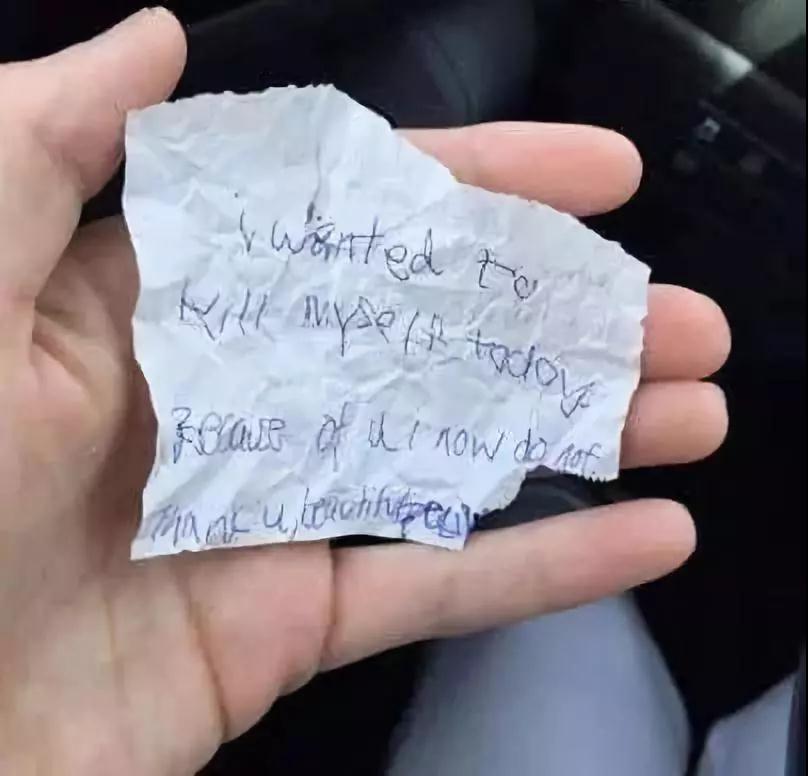 i wanted to
kill myself today
Because of u i now do not.
Thank u, beautiful